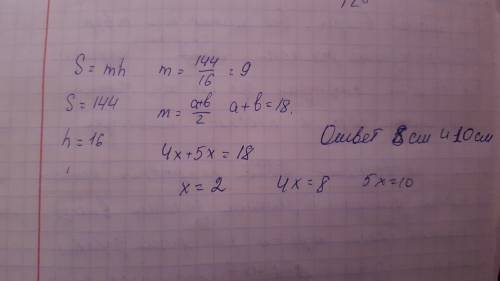 S = mh m = 144/16 = 9
S = 144 m = a+b/2 a+b = 18.
h = 16
4x+5x = 18
Ответ 8см и 10 см
x = 2 4x = 8 5x = 10